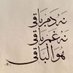 نه دم باقى
نه غم باقى
هو الباقى